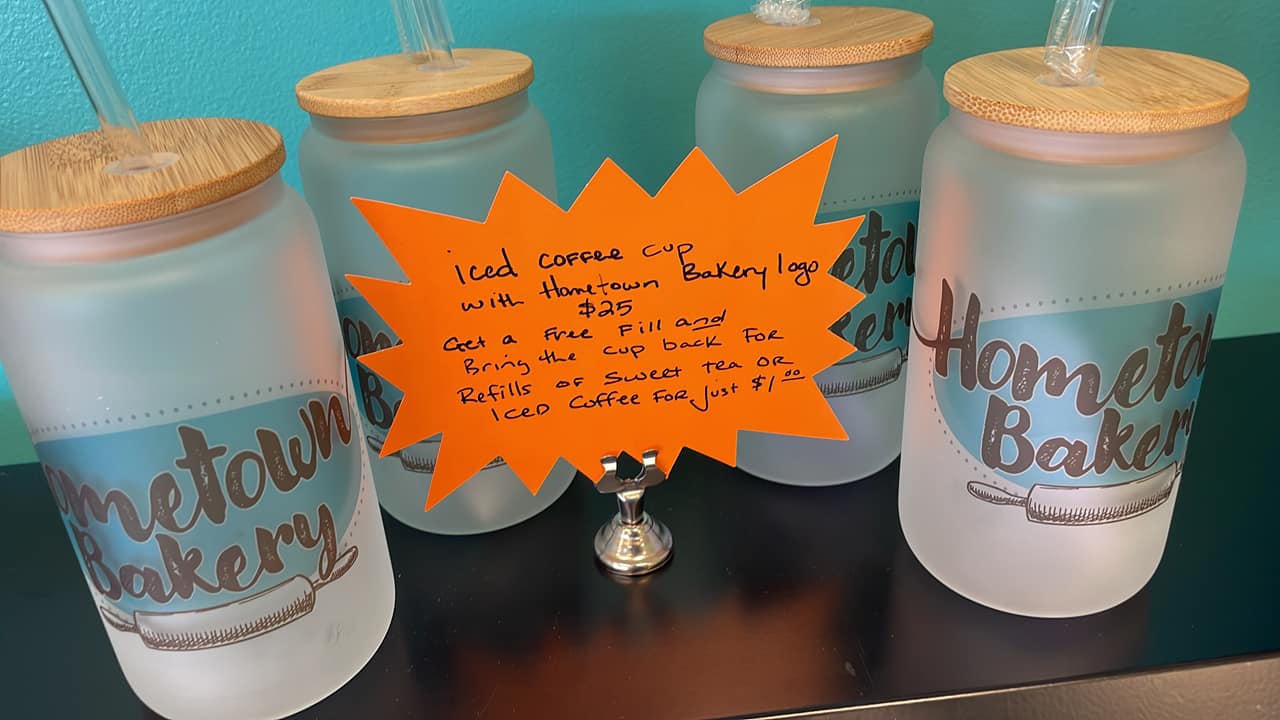 iced coffee cup
with Hometown Bakery logo
$25
Get a Free Fill and
Bring the cup back For
Refills of sweet tea OR
Iced Coffee For just $1.00
Hometown
Bakery
Hometown
Bakery